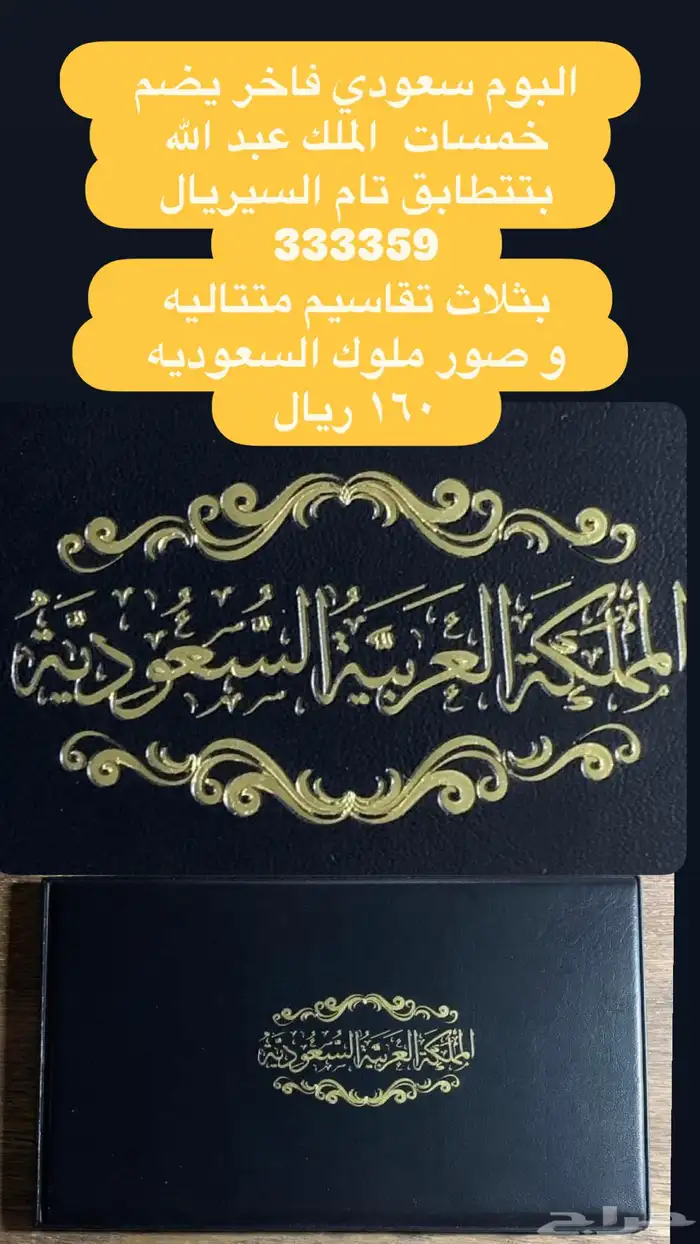 البوم سعودي فاخر يضم
خمسات الملك عبد الله
بتتطابق تام السيريال
333359
بثلاث تقاسيم متتاليه
و صور ملوك السعوديه
١٦٠ ريال
المَمْلَكَة العَرَبيَّة السُّعُودِيَّة
المَمْلَكَة العَرَبيَّة السُّعُودِيَّة
حراج